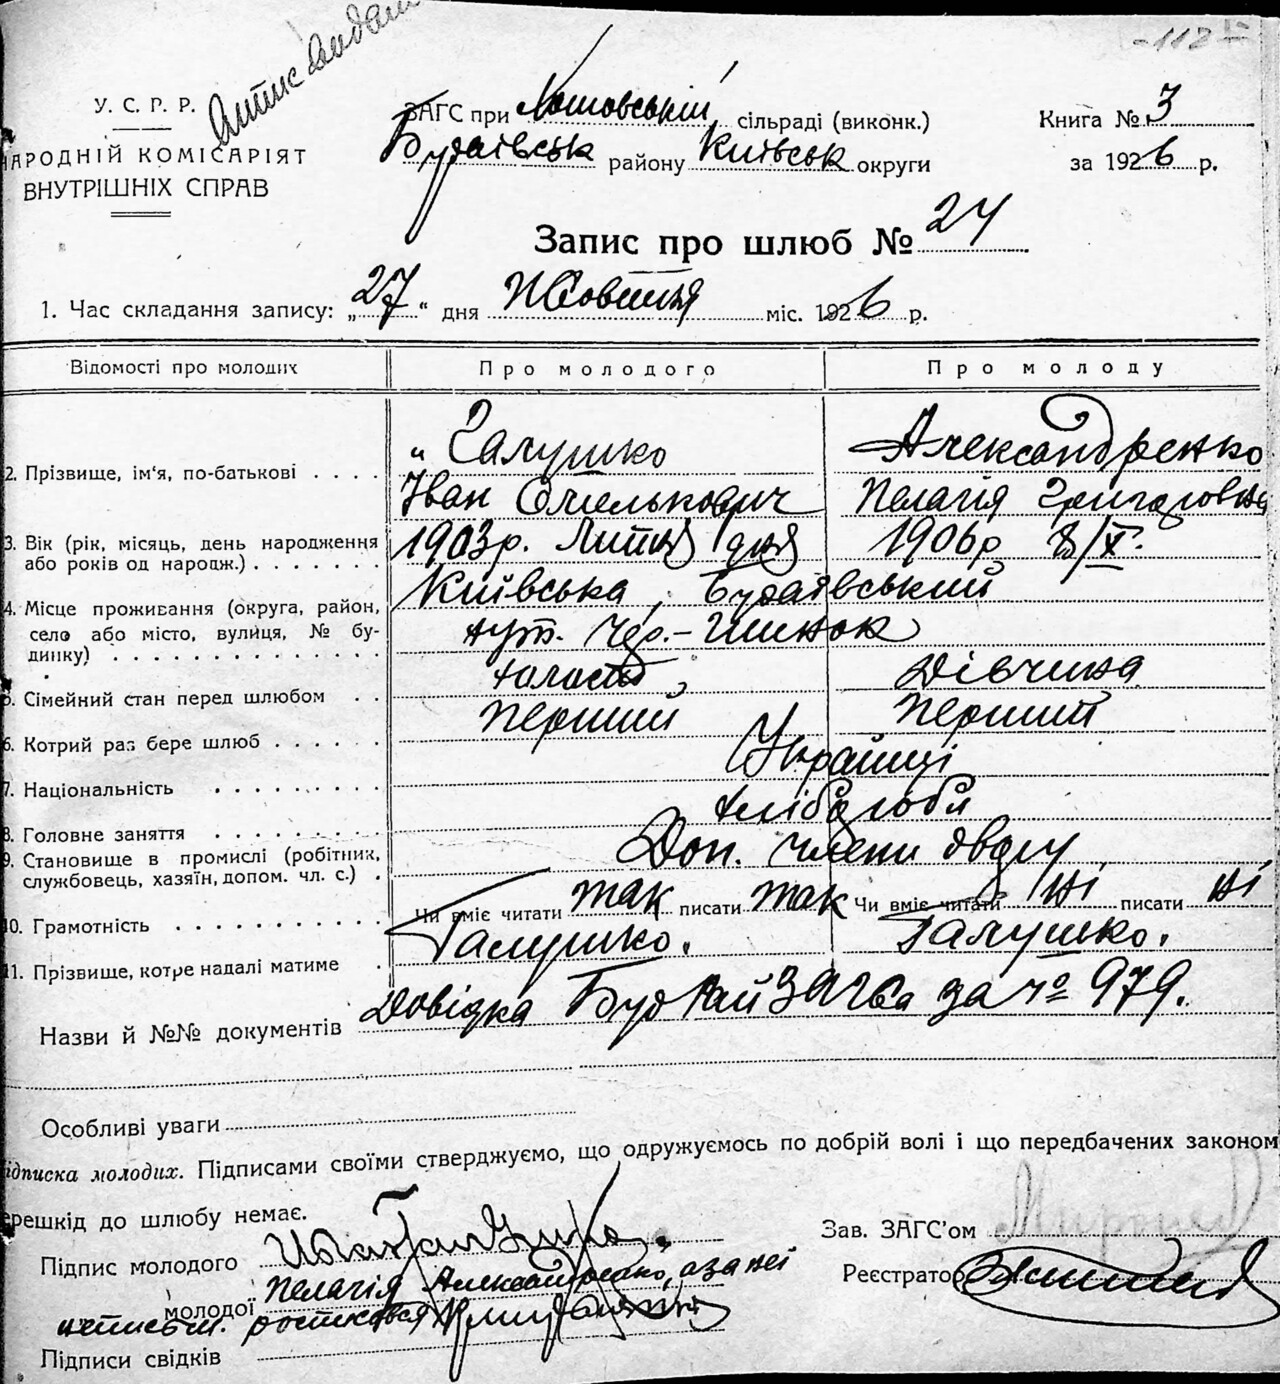 -112
У. С. Р. Р.
НАРОДНІЙ КОМІСАРІЯТ
ВНУТРІШНІХ СПРАВ
ЗАГС при сільраді (виконк.)
Будаївськ району Київськ округи
Книга № 3
за 1926 р.
Запис про шлюб № 24
1. Час складання запису: „27“ дня Жовтня міс. 1926 р.
Відомості про молодих
Про молодого
Про молоду
2. Прізвище, ім'я, по-батькові . . . .
Галушко
Іван Омелькович
Александренко
Пелагія Григоровна
3. Вік (рік, місяць, день народження
або років од народж.) . . . . . . .
1903 р. Лютня дня
1906 р 8/X.
4. Місце проживання (округа, район,
село або місто, вулиця, № бу-
динку) . . . . . . . . . . . . . .
Київська, Будаївський
хут. Чер.-Шинок
5. Сімейний стан перед шлюбом . .
холостой
Дівчина
6. Котрий раз бере шлюб . . . . . .
Перший
Перший
7. Національність . . . . . . . .
Українці
8. Головне заняття . . . . . . . . .
хліборобі
9. Становище в промислі (робітник,
службовець, хазяїн, допом. чл. с.) .
Доп. члени двору
10. Грамотність . . . . . . . . . . .
Чи вміє читати так писати так
Чи вміє читати ні писати ні
11. Прізвище, котре надалі матиме .
Галушко.
Галушко.
Назви й №№ документів Довідка Буд Рай ЗАГСа за № 979.
Особливі уваги
ідписка молодих. Підписами своїми стверджуємо, що одружуємось по добрій волі і що передбачених законом
ерешкід до шлюбу немає.
Підпис молодого
молодої Пелагія Александренко, а за неї
неписьм. ростисався
Підписи свідків
Зав. ЗАГС'ом
Реєстратор